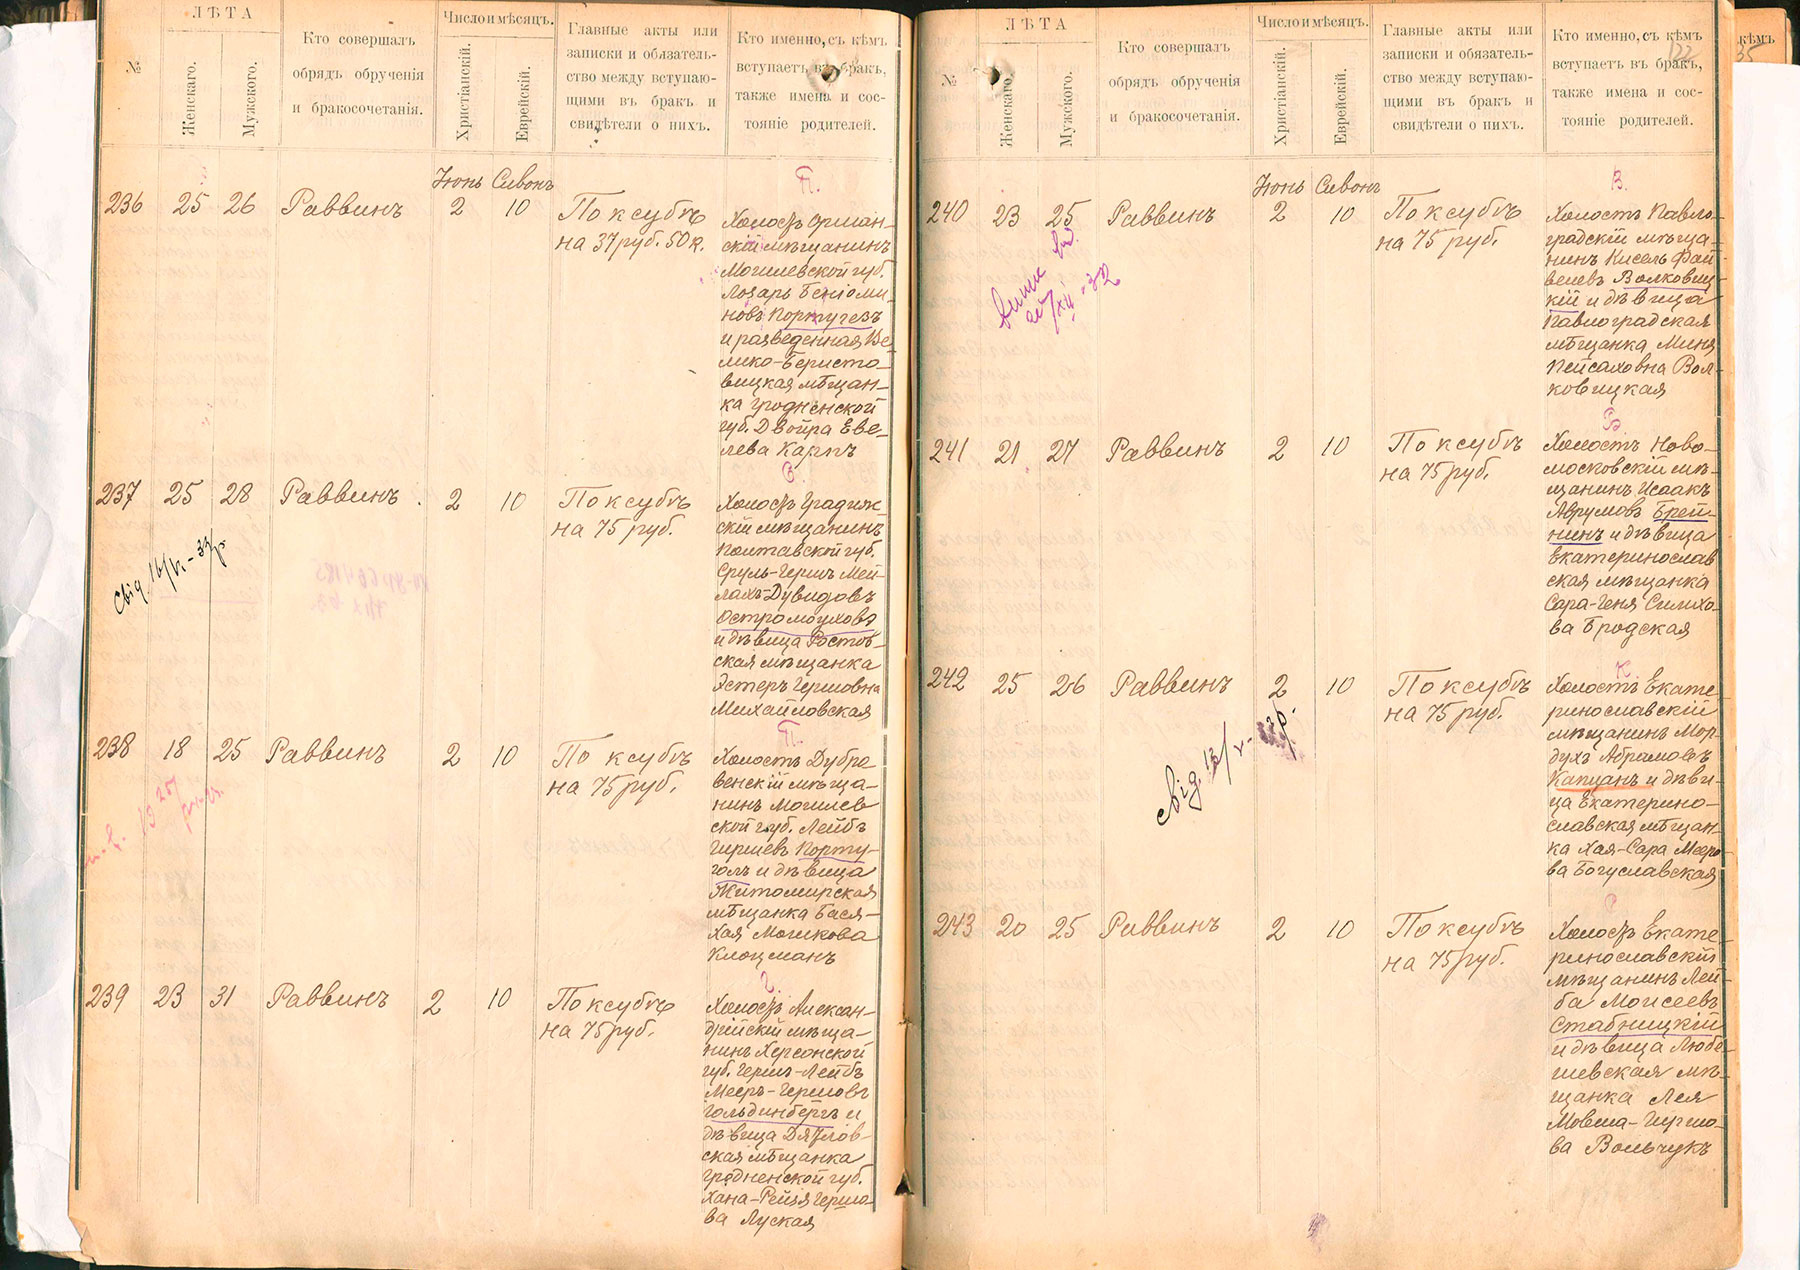 №
ЛѢТА
Женскаго.
Мужского.
Кто совершалъ
обрядъ обрученія
и бракосочетанія.
Число и мѣсяцъ.
Христіанскій.
Еврейскій.
Главные акты или
записки и обязатель-
ство между вступаю-
щими въ бракъ и
свидѣтели о нихъ.
Кто именно, съ кѣмъ
вступаетъ въ бракъ,
также имена и сос-
тояніе родителей.
Іюнь Сивонъ
П.
236 25 26 Раввинъ 2 10
По ксубѣ
на 37 руб. 50 к.
Холостъ Оршан-
скій мѣщанинъ
Могилевской губ.
Лозарь Беніоми-
новъ Португезъ
и разведенная Ве-
лико-Беристо-
вицкая мѣщан-
ка Гродненской
губ. Двойра Еве-
лева Карпъ
О.
237 25 28 Раввинъ 2 10
По ксубѣ
на 75 руб.
Холостъ Градиж-
скій мѣщанинъ
Полтавской губ.
Сруль-Гершъ Мей-
лахъ-Дувидовъ
Остромоуховъ
и дѣвица Ростов-
ская мѣщанка
Эстеръ Гершовна
Михайловская
свід.
П.
238 18 25 Раввинъ 2 10
По ксубѣ
на 75 руб.
Холостъ Дубро-
венскій мѣща-
нинъ Могилев
ской губ. Лейбъ
Гиршевъ Порту-
голъ и дѣвица
Житомирская
мѣщанка Бася-
Хая Мошкова
Клоцманъ
Г.
239 23 31 Раввинъ 2 10
По ксубѣ
на 75 руб.
Холостъ Алексан-
дрійскій мѣща-
нинъ Херсонской
губ. Гершъ-Лейбъ
Мееръ-Гершовъ
Гольдинбергъ и
дѣвица Дятлов-
ская мѣщанка
Гродненской губ.
Хана-Рейзя Герш-
ва Луская
№
ЛѢТА
Женскаго.
Мужского.
Кто совершалъ
обрядъ обрученія
и бракосочетанія.
Число и мѣсяцъ.
Христіанскій.
Еврейскій.
Главные акты или
записки и обязатель-
ство между вступаю-
щими въ бракъ и
свидѣтели о нихъ.
Кто именно, съ кѣмъ
вступаетъ въ бракъ,
также имена и сос-
тояніе родителей.
122
кѣмъ
35
Іюнь Сивонъ
В.
240 23 25 Раввинъ 2 10
По ксубѣ
на 75 руб.
Холостъ Павло-
градскій мѣща-
нинъ Кисель Фай-
велевъ Волковиц-
кій и дѣвица
Павлоградская
мѣщанка Миня
Пейсаховна Вол-
ковицкая
Б.
241 21 27 Раввинъ 2 10
По ксубѣ
на 75 руб.
Холостъ Ново-
московскій мѣ-
щанинъ Исаакъ
Аврумовъ Брей-
нинъ и дѣвица
Екатеринослав
ская мѣщанка
Сара-Геня Силихо-
ва Бродская
К.
242 25 26 Раввинъ 2 10
По ксубѣ
на 75 руб.
Холостъ Екате-
ринославскій
мѣщанинъ Мор-
духъ Абрамовъ
Капцанъ и дѣви-
ца Екатерино-
славская мѣщан-
ка Хая-Сара Мееро-
ва Богуславская
свід.
С
243 20 25 Раввинъ 2 10
По ксубѣ
на 75 руб.
Холостъ Екате-
ринославскій
мѣщанинъ Лей-
ба Моисеевъ
Стабницкій
и дѣвица Любе-
шевская мѣ-
щанка Лея
Мовша-Гиршо-
ва Вольчукъ